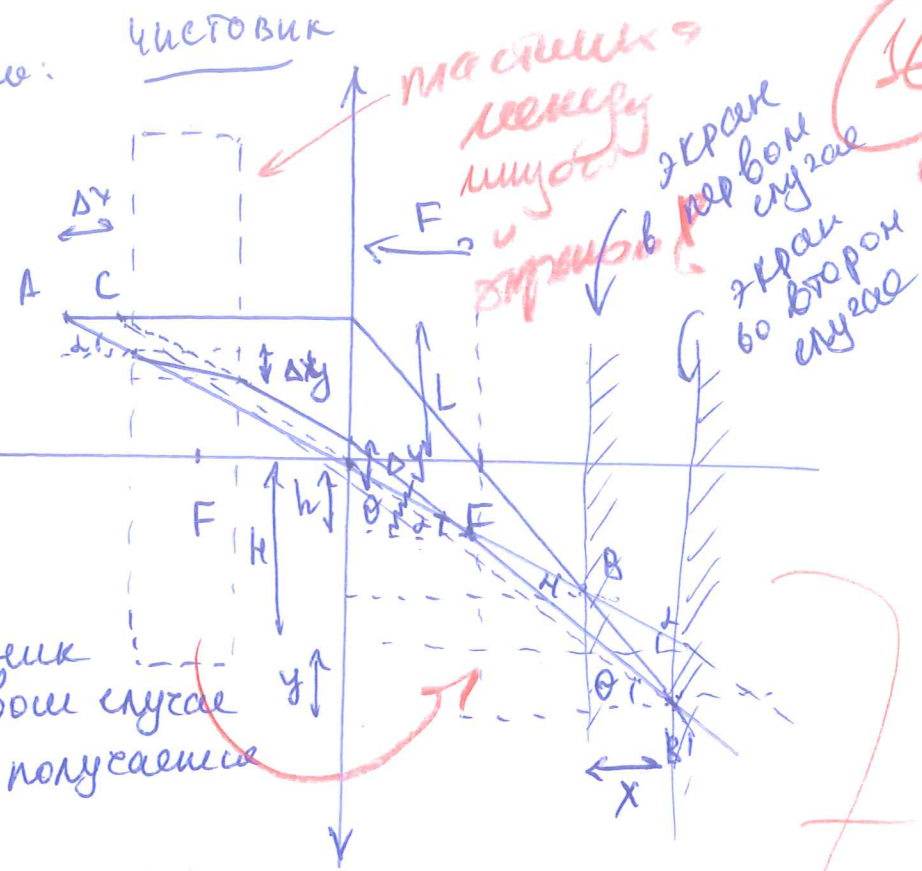 чистовик
пластинка
между
линзой
и
экраном
экран
в первом
случае
экран
во втором
случае
Δx
F
A C
Δy
L
Δy
F
h
H
θ
F
B
y
θ
B'
X
случае
получается